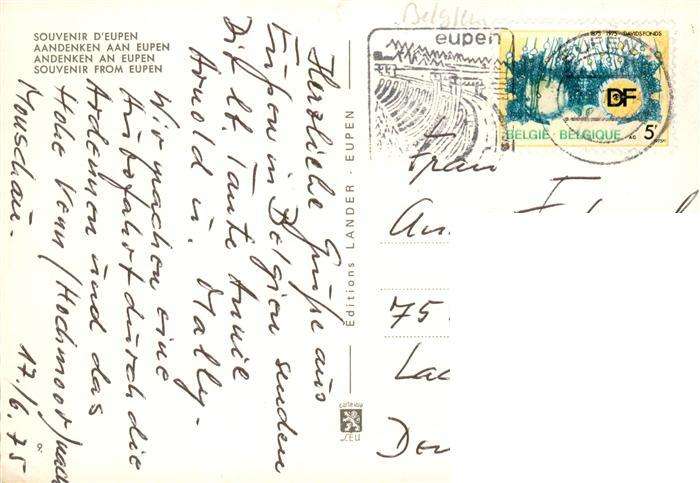 Belgien
SOUVENIR D'EUPEN
AANDENKEN AAN EUPEN
ANDENKEN AN EUPEN
SOUVENIR FROM EUPEN
Herzliche Grüße aus
Eupen in Belgien senden
Dir lb. Tante Annie
Arnold u. Mally.
Wir machen eine
Autofahrt durch die
Ardennen und das
Hohe Venn (Hochmoor) nach
Monschau.
17./6. 75
Editions LANDER - EUPEN
cartevue
LEU
eupen
1875 1975 DAVIDSFONDS
DF
BELGIE-BELGIQUE 5F
EUPEN
Frau
An
75
Lau
Den